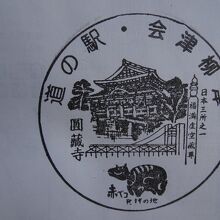 道の駅・会津柳
日本三所之一
福満虚空蔵尊
圓藏寺
赤べこ
発祥の地